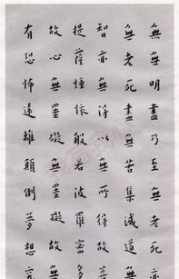 無明盡乃至無老死亦
無老死盡無苦集滅道無
智亦無得以無所得故菩
提薩埵依般若波羅蜜多
故心無罣礙無罣礙故無
有恐怖遠離顛倒夢想究